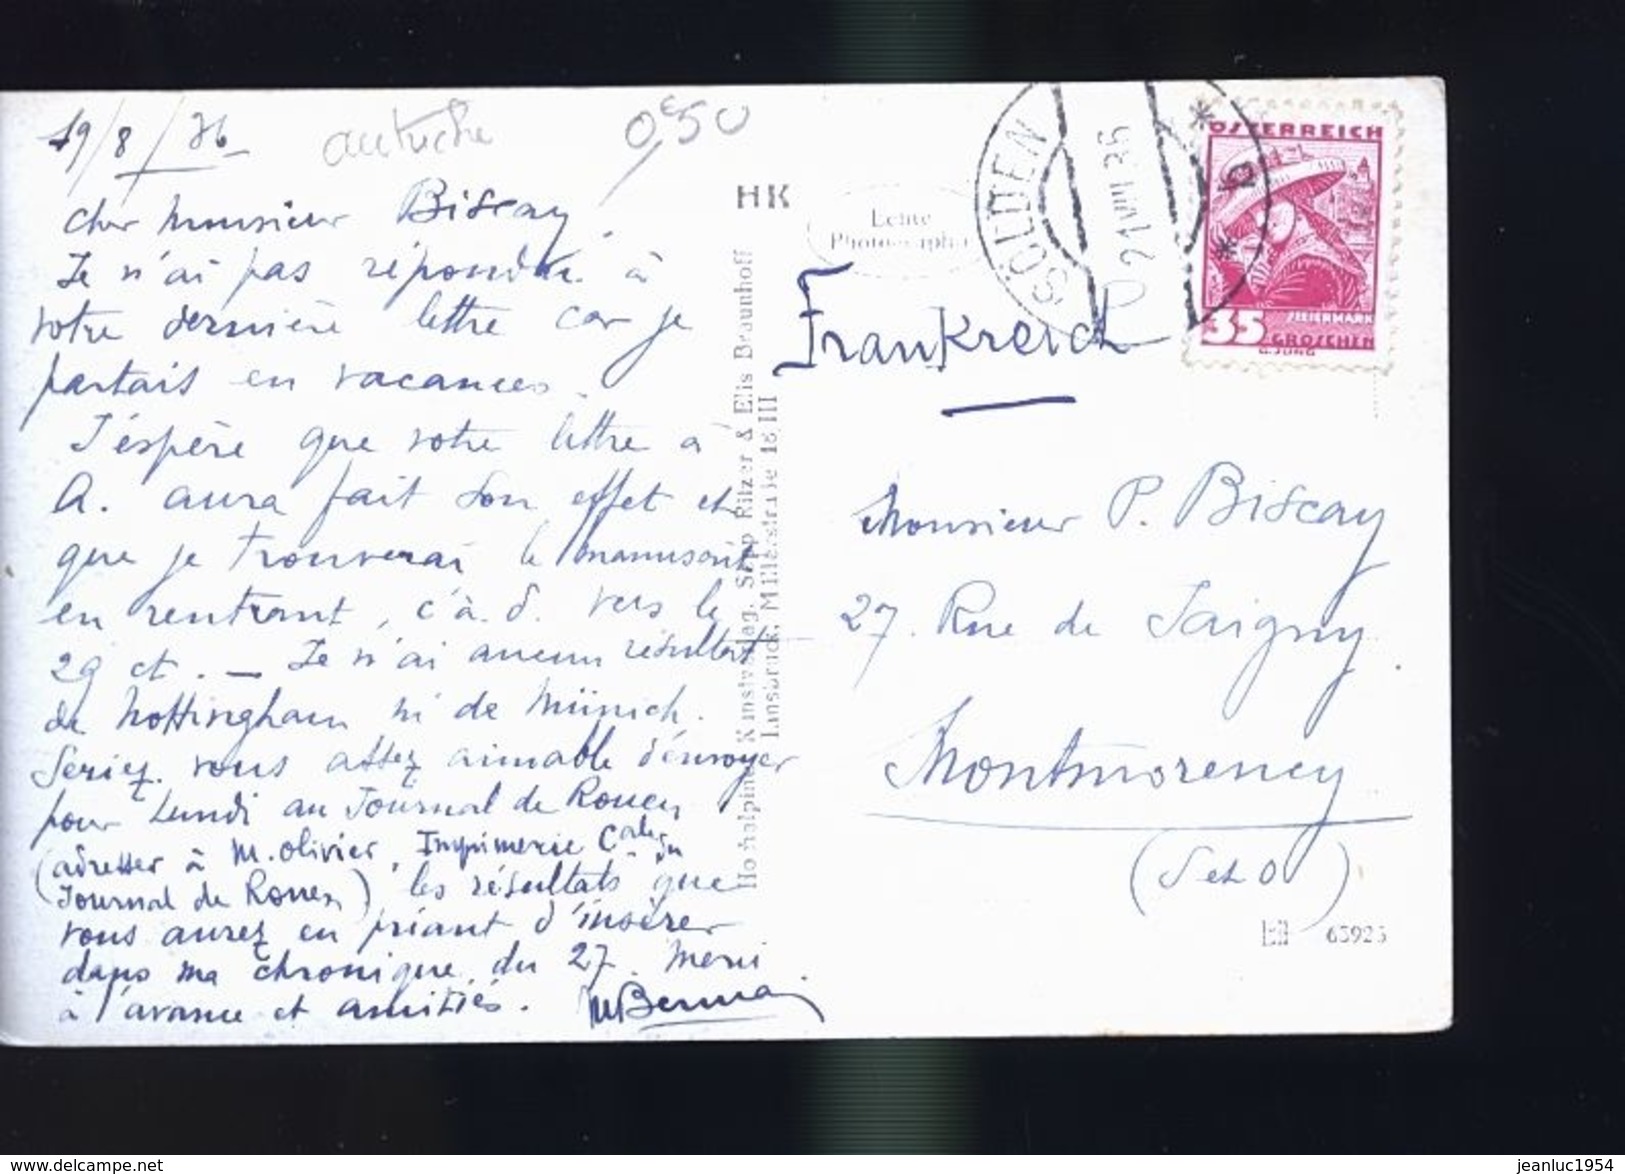 19/8/36
autriche
0€50
Cher Monsieur Biscay,
Je n'ai pas répondu à
votre dernière lettre car je
partais en vacances.
J'éspère que votre lettre à
A. aura fait son effet et
que je trouverai le manuscrit
en rentrant, c'à.d. vers le
29 ct. — Je n'ai aucun résultat
de Nottingham ni de Münich.
Seriez vous assez aimable d'envoyer
pour Lundi au Journal de Rouen
(adresser à M. Olivier, Imprimerie du
Journal de Rouen) les résultats que
vous aurez en priant d'insérer
dans ma chronique du 27. Merci
à l'avance et amitiés.
HK
Echte
Photographie
Hochalpiner Kunstverlag, Sepp Ritzer & Elis Braunhoff
Innsbruck, Müllerstraße 18/III
SÖLDEN
21.VIII.36
* b *
ÖSTERREICH
STEIERMARK
35 GROSCHEN
G.JUNG
Frankreich
Monsieur P. Biscay
27. Rue de Jaigny.
Montmorency
(S et O)
63923
jeanluc1954